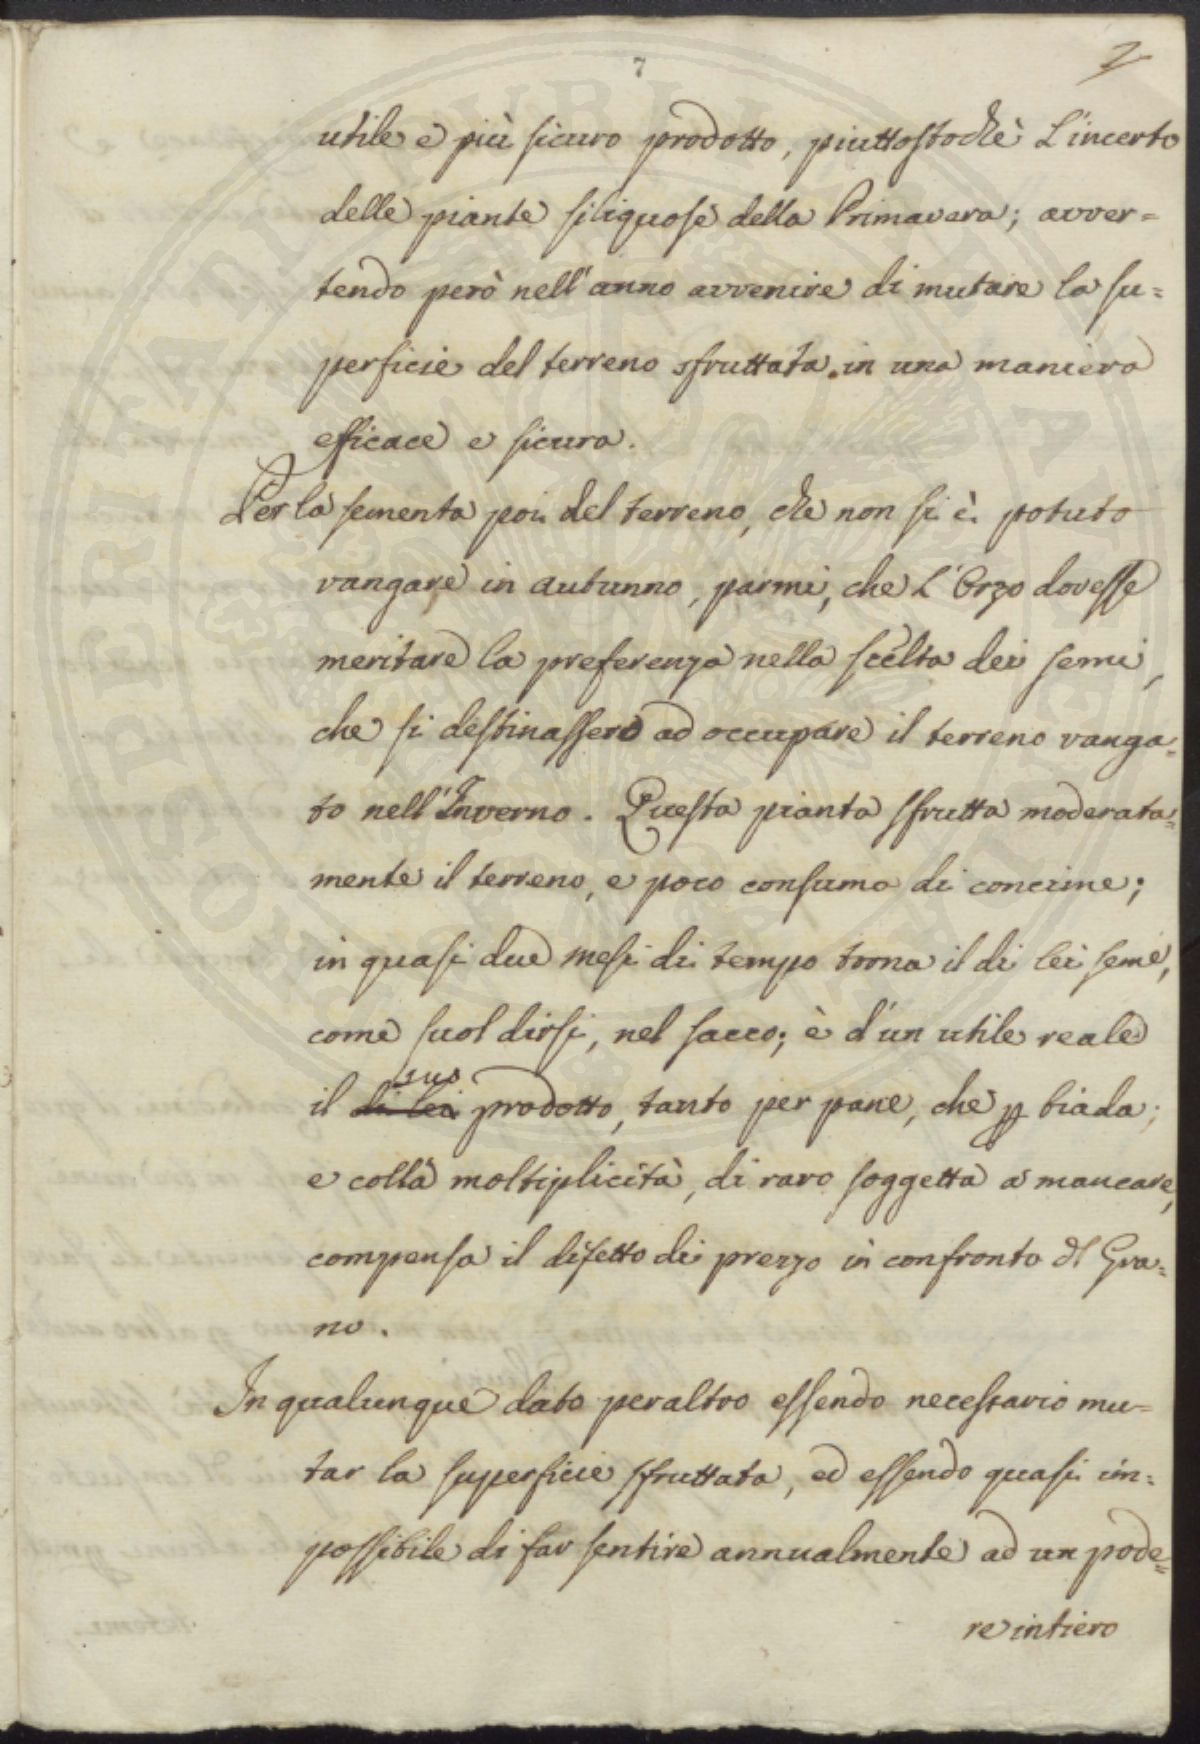 7
2
utile e più sicuro prodotto, piuttostochè L'incerto
delle piante siliquose della Primavera; avver=
tendo però nell'anno avvenire di mutare la su=
perficie del terreno sfruttata in una maniera
efficace e sicura.
Per la sementa poi del terreno, che non si è potuto
vangare in autunno, parmi, che L'Orzo dovesse
meritare la preferenza nella scelta dei semi,
che si destinassero ad occupare il terreno vanga=
to nell'Inverno. Questa pianta sfrutta moderata=
mente il terreno, e poco consuma di concime;
in quasi due mesi di tempo torna il di lei seme,
come suol dirsi, nel sacco; è d'un utile reale
suo
il di lei prodotto, tanto per pane, che p biada;
e colla moltiplicità, di raro soggetta a mancare,
compensa il difetto di prezzo in confronto dl Gra=
no.
In qualunque dato peraltro essendo necessario mu=
tar la superficie sfruttata, ed essendo quasi im=
possibile di far sentire annualmente ad un pode=
re intiero